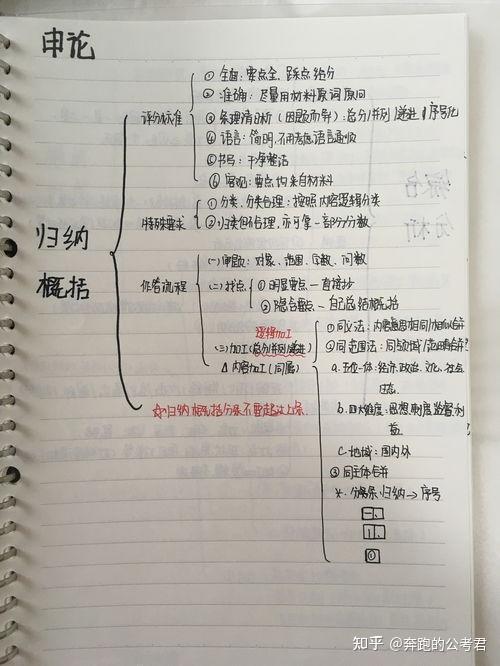 申论
归纳
概括
评分标准
① 全面:要点全、踩点给分
② 准确:尽量用材料原词原句
③ 条理清晰(因题而异):总分/并列/递进 序号化
④ 语言:简明,不用考虑语言
⑤ 书写:干净整洁
⑥ 客观:要点均来自材料
特殊要求
① 分类,分类合理:按照内容逻辑分类
② 归类但合理,亦可拿一部分分数
作答流程
(一)审题:对象、范围、字数、问数
(二)找点 ① 明显要点—直接抄
② 隐含要点—自己总结概括
逻辑加工
(三)加工(总分/并列/递进)
Δ 内容加工(同属)
① 同义法:内容意思相同/相似合并
② 同范围法:同领域/范围合并
a. 五位一体:经济、政治、文化、社会
生态
b. 四大维度:思想、制度、监督、利
益
c. 地域:国内外
③ 同主体合并
*. 分条归纳→序号
一、
1、
①
归纳概括分条不要超过七条
知乎 @奔跑的公考君